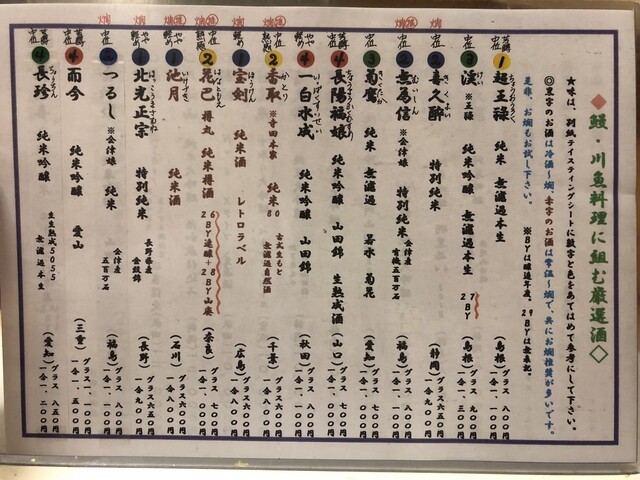 ◆鰻・川魚料理に組む厳選酒◇
★味は、別紙テイスティングシートに数字と色をあてはめて参考にして下さい。
◎黒字のお酒は冷酒〜燗、赤字のお酒は常温〜燗で、共にお燗推奨が多いです。
是非、お燗もお試し下さい。
※BYは醸造年度。29BYは無表記。
1 超王禄 純米 無濾過本生 (島根) グラス 八〇〇円
中位
3 渓 ※王禄 純米吟醸 無濾過本生 27BY (島根) グラス 九〇〇円 一合一、三〇〇円
2 喜久酔 きくよい 特別純米 (静岡) グラス六五〇円 一合九〇〇円
燗
2 無為信 むいしん ※会津娘 特別純米 会津産 有機五百万石 (福島) グラス 八〇〇円 一合一、一〇〇円
中位
3 菊鷹 きくたか 純米 無濾過 若水 菊花 (愛知) グラス 七〇〇円 一合一、〇〇〇円
4 長陽福娘 純米吟醸 山田錦 生熟成酒 (山口) グラス 七〇〇円 一合一、〇〇〇円
中位
4 一白水成 いっぱくすいせい 純米吟醸 山田錦 (秋田) グラス 八〇〇円 一合一、一〇〇円
やや
2 香取 かとり ※寺田本家 純米80 古式生もと 無濾過自然酒 (千葉) グラス六〇〇円 一合八〇〇円
1 宝剣 ほうけん 純米酒 レトロラベル (広島) グラス六〇〇円 一合八〇〇円
燗
2 花巴 樽丸 純米樽酒 26BY速醸+28BY山廃 (奈良) グラス 七〇〇円 一合一、〇〇〇円
1 池月 いけづき 純米酒 (石川) グラス六〇〇円 一合八〇〇円
やや
1 北光正宗 ほっこうまさむね 特別純米 長野県産 金紋錦 (長野) グラス六五〇円 一合九〇〇円
やや
2 つるし ※会津娘 純米 会津産 五百万石 (福島) グラス 八〇〇円 一合一、一〇〇円
中位
4 而今 純米吟醸 愛山 (三重) グラス一、一〇〇円 一合一、五〇〇円
中位
4 長珍 純米吟醸 生生熟成5055 無濾過本生 (愛知) グラス 八五〇円 一合一、二〇〇円
中位